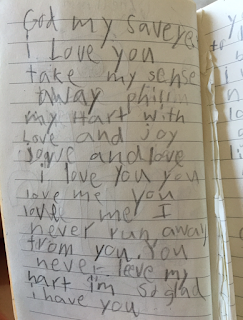 God my saveyer
i Love you
take my sense
away phillin
my Hart with
Love and joy
joyie and love
i love you you
love me you
love me I
never run away
from you. You
never leve my
hart i'm so glad
i have you